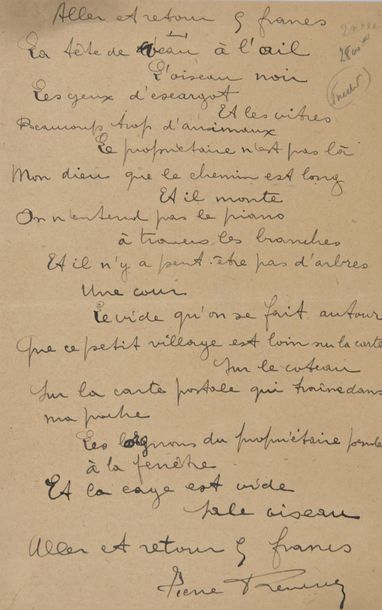 Aller et retour 5 francs
La tête de veau à l'ail
L'oiseau noir
Les yeux d'escargot
Et les vitres
Beaucoup trop d'animaux
Le propriétaire n'est pas là
Mon dieu que le chemin est long
Et il monte
On n'entend pas le piano
à travers les branches
Et il n'y a peut-être pas d'arbres
Une cour
Le vide qu'on se fait autour
Que ce petit village est loin sur la carte
Sur le coteau
Sur la carte postale qui traîne dans
ma poche
Les lorgnons du propriétaire
à la fenêtre
Et la cage est vide
Sale oiseau
Aller et retour 5 francs
Pierre Reverdy